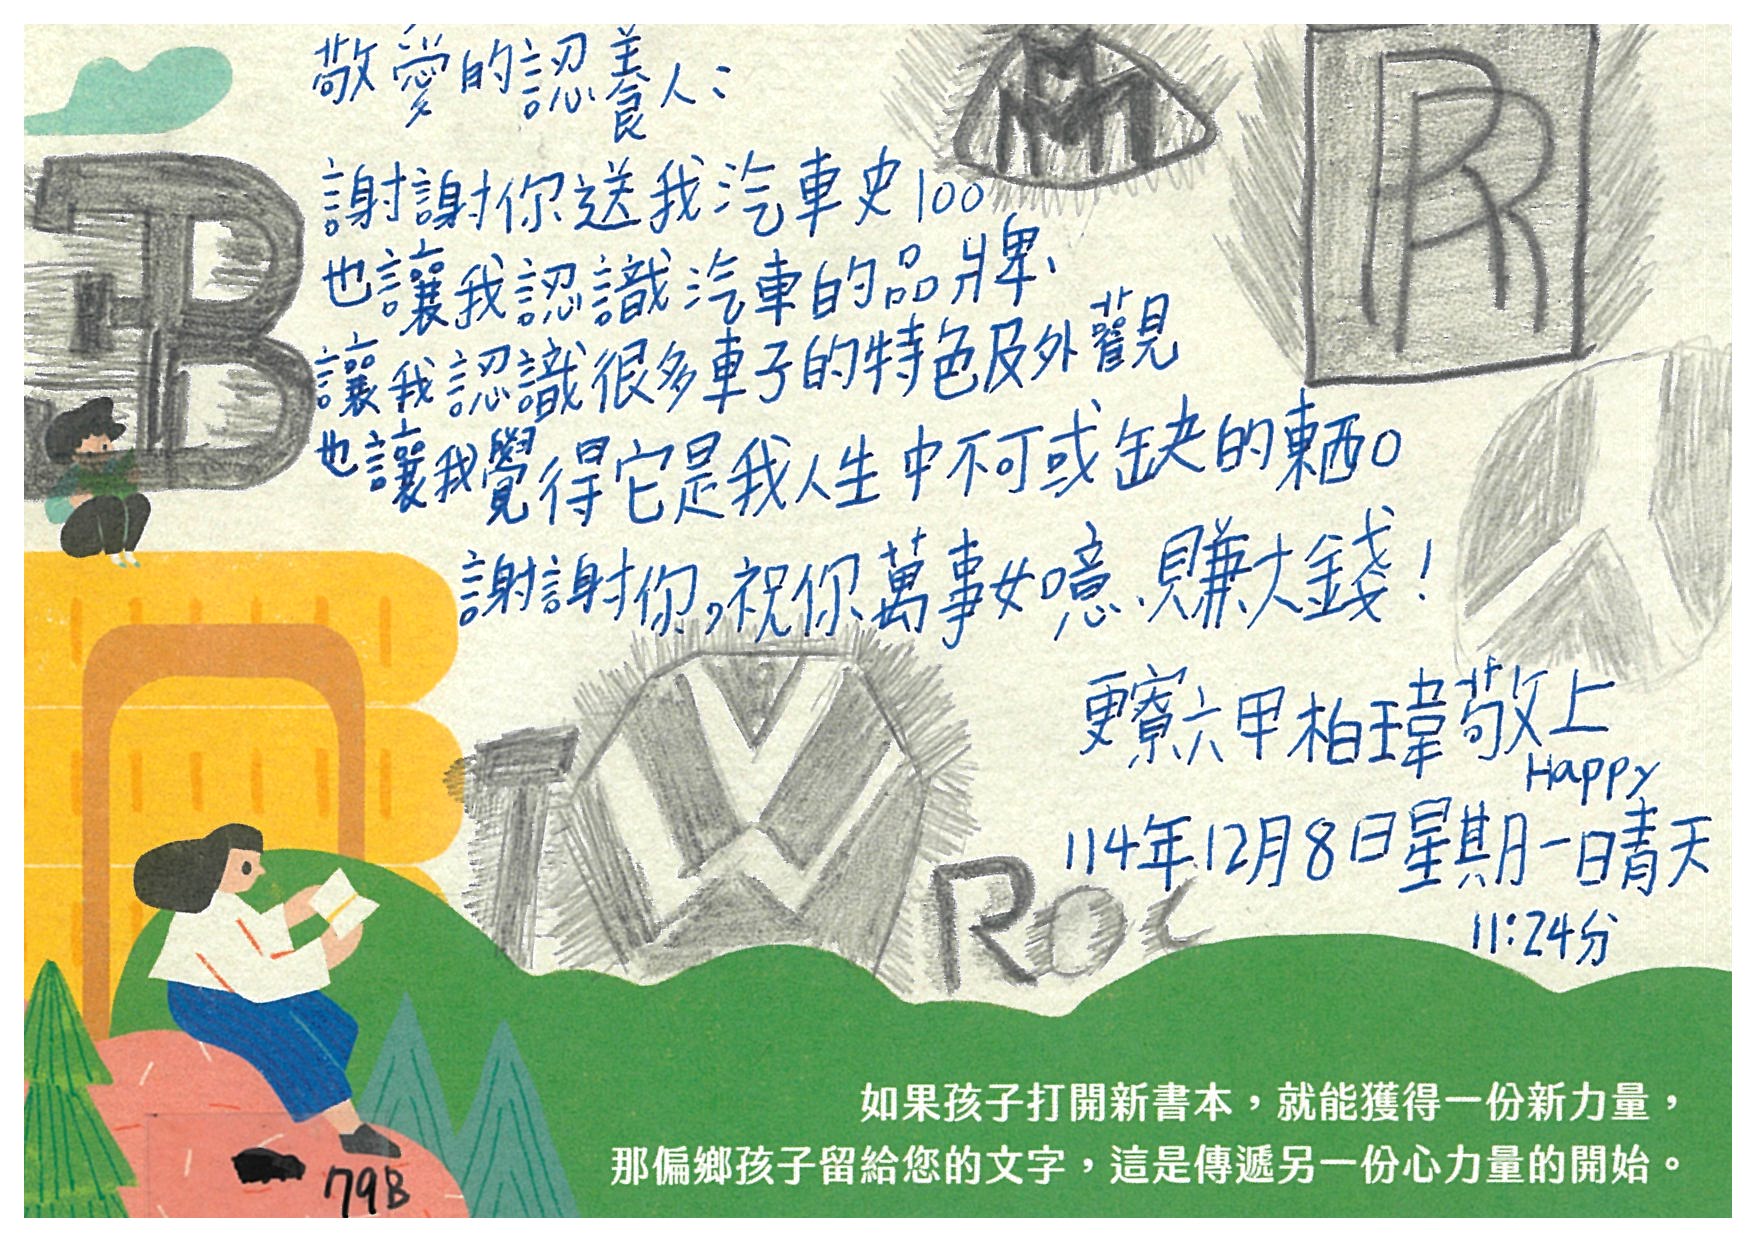 敬愛的認養人：
謝謝你送我汽車史100
也讓我認識汽車的品牌、
讓我認識很多車子的特色及外觀
也讓我覺得它是我人生中不可或缺的東西。
謝謝你，祝你萬事如意、賺大錢！
更寮六甲柏瑋敬上
Happy
114年12月8日星期一日晴天
11:24分
B
M
RR
T
W
ROC
如果孩子打開新書本，就能獲得一份新力量，
那偏鄉孩子留給您的文字，這是傳遞另一份心力量的開始。
79B